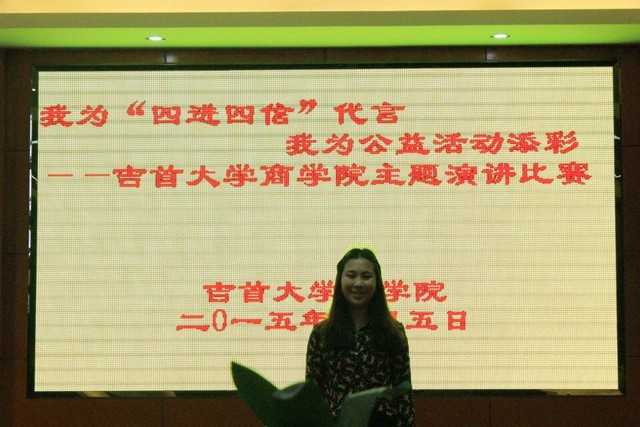 我为“四进四信”代言
我为公益活动添彩
——吉首大学商学院主题演讲比赛
吉首大学 学院
二0一五年 月五日